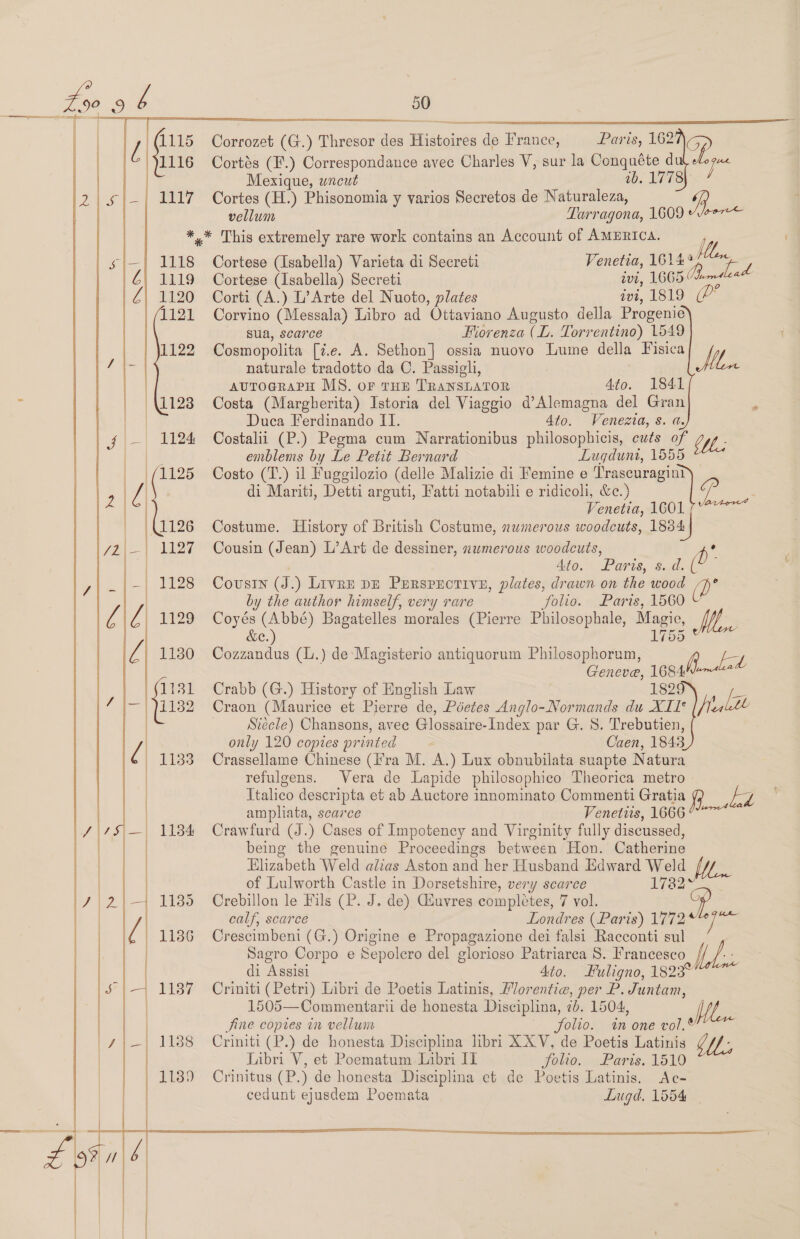 £90 9 6 50
1115 Corrozet (G.) Thresor des Histoires de France, Paris, 1627
1116 Cortès (F.) Correspondance avec Charles V, sur la Conquête du
Mexique, uncut ib. 1778
2 5 - 1117 Cortes (H.) Phisonomia y varios Secretos de Naturaleza,
vellum Tarragona, 1609
*** This extremely rare work contains an Account of AMERICA.
5 - 1118 Cortese (Isabella) Varieta di Secreti Venetia, 1614 Allen
6 1119 Cortese (Isabella) Secreti ivi, 1665 Bumstead
6 1120 Corti (A.) L'Arte del Nuoto, plates ivi, 1819
1121 Corvino (Messala) Libro ad Ottaviano Augusto della Progenie
sua, scarce Fiorenza (L. Torrentino) 1549
1122 Cosmopolita [i.e. A. Sethon] ossia nuovo Lume della Fisica
1 - naturale tradotto da C. Passigli, Allen
AUTOGRAPH MS. OF THE TRANSLATOR 4to. 1841
1123 Costa (Margherita) Istoria del Viaggio d'Alemagna del Gran
Duca Ferdinando II. 4to. Venezia, s. a.
1124 Costalii (P.) Pegma cum Narrationibus philosophicis, cuts of
emblems by Le Petit Bernard Lugduni, 1555
1125 Costo (T.) il Fuggilozio (delle Malizie di Femine e Trascuragini
2 6 di Mariti, Detti arguti, Fatti notabili e ridicoli, &c.)
Venetia, 1601
1126 Costume. History of British Costume, numerous woodcuts, 1834
12 - 1127 Cousin (Jean) L'Art de dessiner, numerous woodcuts,
4to. Paris, s. d.
1 - - 1128 COUSIN (J.) LIVRE DE PERSPECTIVE, plates, drawn on the wood
by the author himself, very rare folio. Paris, 1560
6 6 1129 Coyés (Abbé) Bagatelles morales (Pierre Philosophale, Magie,
&c.) 1755 Allen
6 1130 Cozzandus (L.) de Magisterio antiquorum Philosophorum,
Genevæ, 1684 Bumstead
1131 Crabb (G.) History of English Law 1829
1 - 1132 Craon (Maurice et Pierre de, Póetes Anglo-Normands du XIIe
Siècle) Chansons, avec Glossaire-Index par G. S. Trebutien,
only 120 copies printed Caen, 1843
6 1133 Crassellame Chinese (Fra M. A.) Lux obnubilata suapte Natura
refulgens. Vera de Lapide philosophico Theorica metro
Italico descripta et ab Auctore innominato Commenti Gratia
ampliata, scarce Venetiis, 1666 Bumstead
1 15 - 1134 Crawfurd (J.) Cases of Impotency and Virginity fully discussed,
being the genuine Proceedings between Hon. Catherine
Elizabeth Weld alias Aston and her Husband Edward Weld
of Lulworth Castle in Dorsetshire, very scarce 1732
1 2 - 1135 Crebillon le Fils (P. J. de) Œuvres complètes, 7 vol.
calf, scarce Londres (Paris) 1772
6 1136 Crescimbeni (G.) Origine e Propagazione dei falsi Racconti sul
Sagro Corpo e Sepolcro del glorioso Patriarca S. Francesco
di Assisi 4to. Fuligno, 1823
5 - 1137 Criniti (Petri) Libri de Poetis Latinis, Florentiæ, per P. Juntam,
1505—Commentarii de honesta Disciplina, ib. 1504,
fine copies in vellum folio. in one vol. Allen
1 - 1138 Criniti (P.) de honesta Disciplina libri XXV, de Poetis Latinis
Libri V, et Poematum Libri II folio. Paris. 1510
1139 Crinitus (P.) de honesta Disciplina et de Poetis Latinis. Ac-
cedunt ejusdem Poemata Lugd. 1554